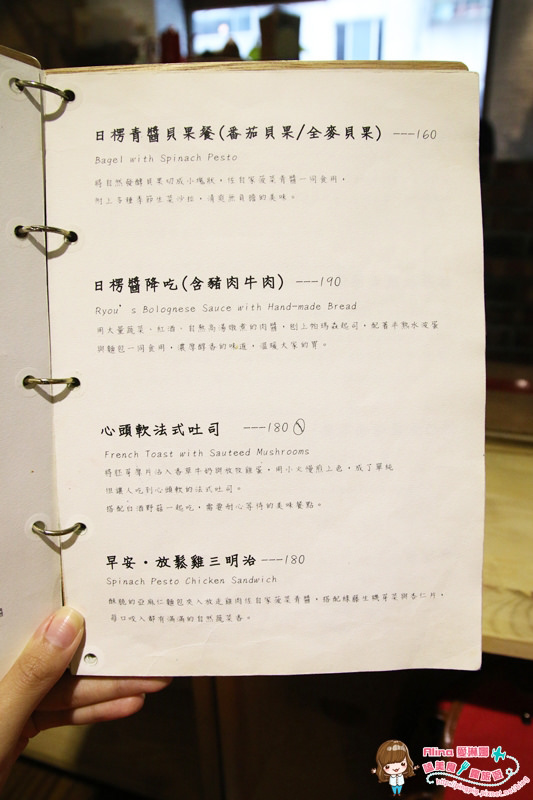 日楞青醬貝果餐(番茄貝果/全麥貝果) ---160
Bagel with Spinach Pesto
將自然發酵貝果切成小塊狀，佐自家菠菜青醬一同食用，
附上多種季節生菜沙拉，清爽無負擔的美味。
日楞醬降吃(含豬肉牛肉) ---190
Ryou's Bolognese Sauce with Hand-made Bread
用大量蔬菜、紅酒、自熬高湯燉煮的肉醬，刨上帕瑪森起司，配著半熟水波蛋
與麵包一同食用，濃厚醇香的味道，溫暖大家的胃。
心頭軟法式吐司 ---180
French Toast with Sauteed Mushrooms
將胚芽厚片浸入香草牛奶與牧牧雞蛋，用小火慢煎上色，成了單純
但讓人吃到心頭軟的法式吐司。
搭配白酒野菇一起吃，需要耐心等待的美味餐點。
早安·放鬆雞三明治 ---180
Spinach Pesto Chicken Sandwich
酥脆的亞麻仁麵包夾入放走雞肉佐自家菠菜青醬，搭配綠藤生機芽菜與杏仁片，
每口咬入都有滿滿的自然蔬菜香。
Alina 愛琳娜
嗑美食 旅遊趣